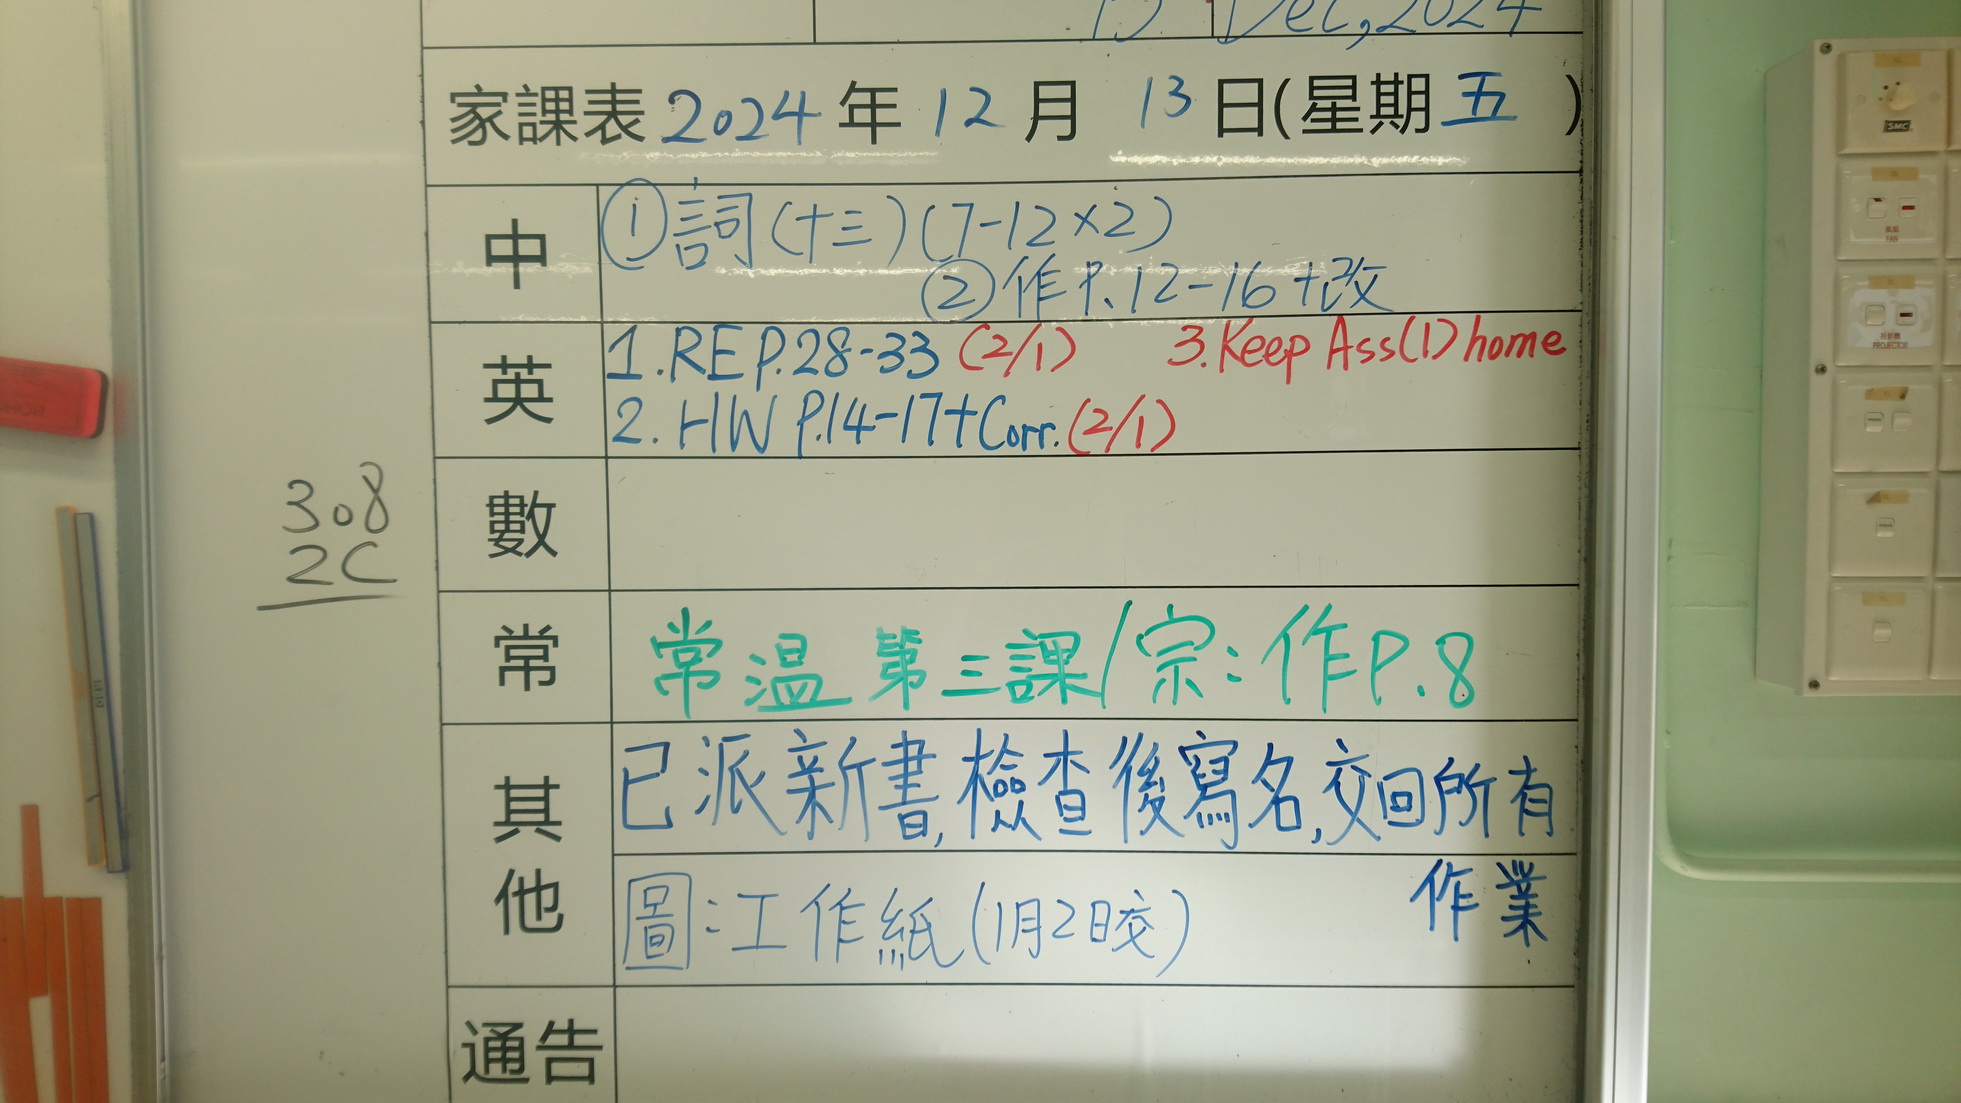 13 Dec, 2024
家課表 2024 年 12 月 13 日(星期五)
中
①詞(十三)(7-12×2)
②作P.12-16+改
英
1.RE P.28-33 (2/1) 3.Keep Ass(1) home
2. HW P.14-17+Corr.(2/1)
308
2C
數
常
常溫第三課/宗:作P.8
其他
已派新書,檢查後寫名,交回所有
作業
圖:工作紙(1月2日交)
通告
SMC
FAN
PROJECTOR